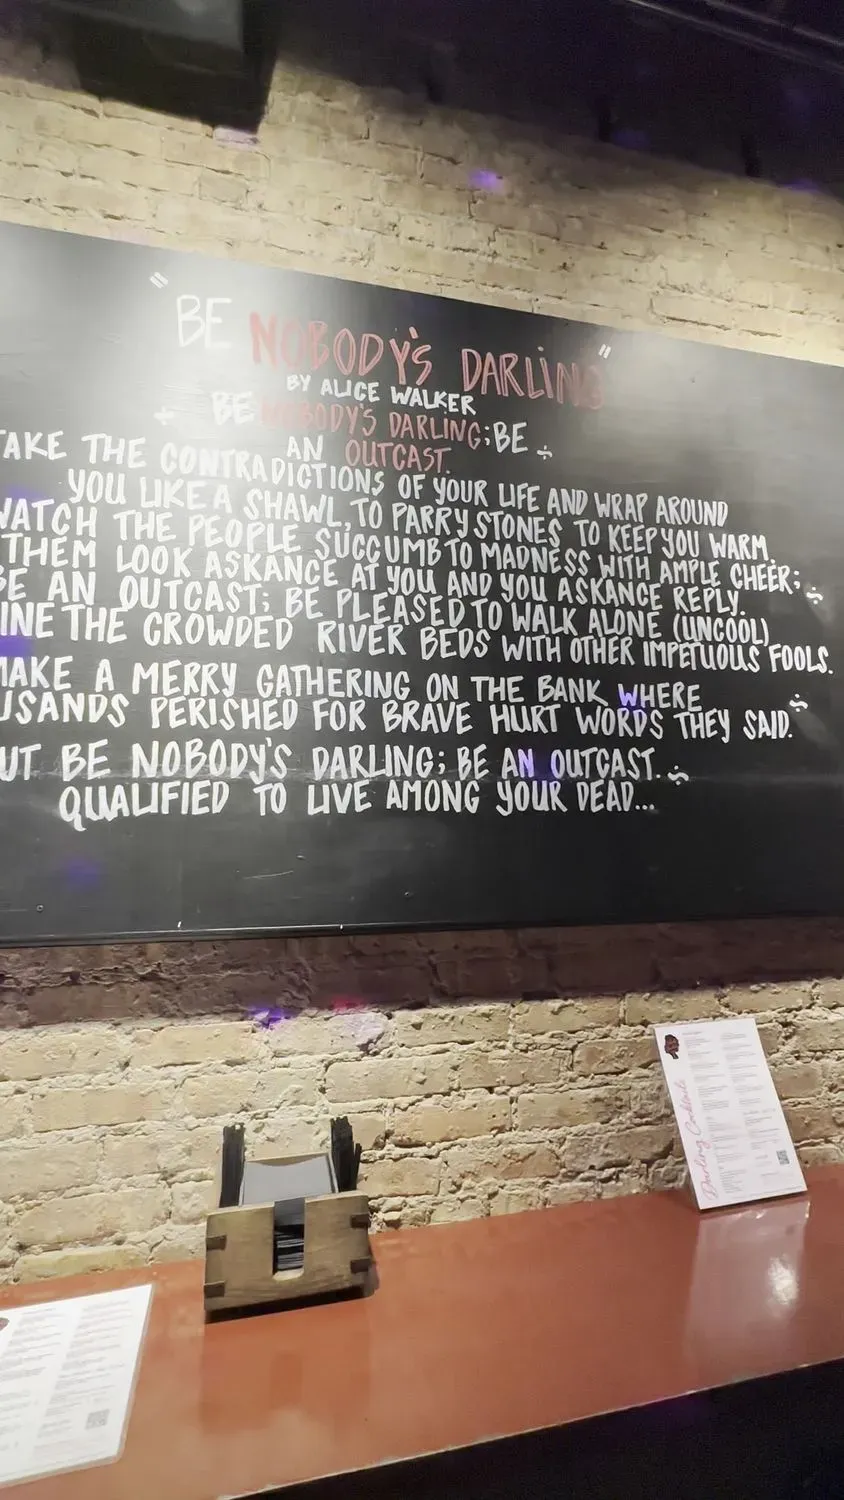 "BE NOBODY'S DARLING"
BY ALICE WALKER
BE NOBODY'S DARLING; BE
AN OUTCAST.
TAKE THE CONTRADICTIONS OF YOUR LIFE AND WRAP AROUND
YOU LIKE A SHAWL, TO PARRY STONES TO KEEP YOU WARM.
WATCH THE PEOPLE SUCCUMB TO MADNESS WITH AMPLE CHEER;
THEM LOOK ASKANCE AT YOU AND YOU ASKANCE REPLY.
BE AN OUTCAST; BE PLEASED TO WALK ALONE (UNCOOL)
INE THE CROWDED RIVER BEDS WITH OTHER IMPETUOUS FOOLS.
MAKE A MERRY GATHERING ON THE BANK WHERE
USANDS PERISHED FOR BRAVE HURT WORDS THEY SAID.
UT BE NOBODY'S DARLING; BE AN OUTCAST.
QUALIFIED TO LIVE AMONG YOUR DEAD...
Darling Cocktails